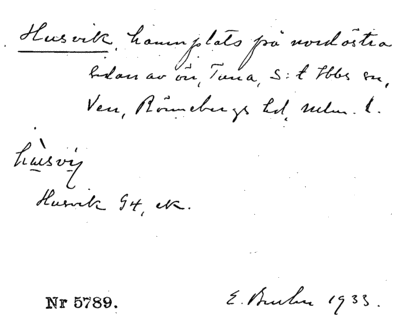 Husvik, hamnplats på nordöstra
sidan av ön, Tuna, S:t Ibbs sn,
Ven, Rönnebergs hd, Mlm. l.
Husvik G4, ek.
Nr 5789. E. 1933.